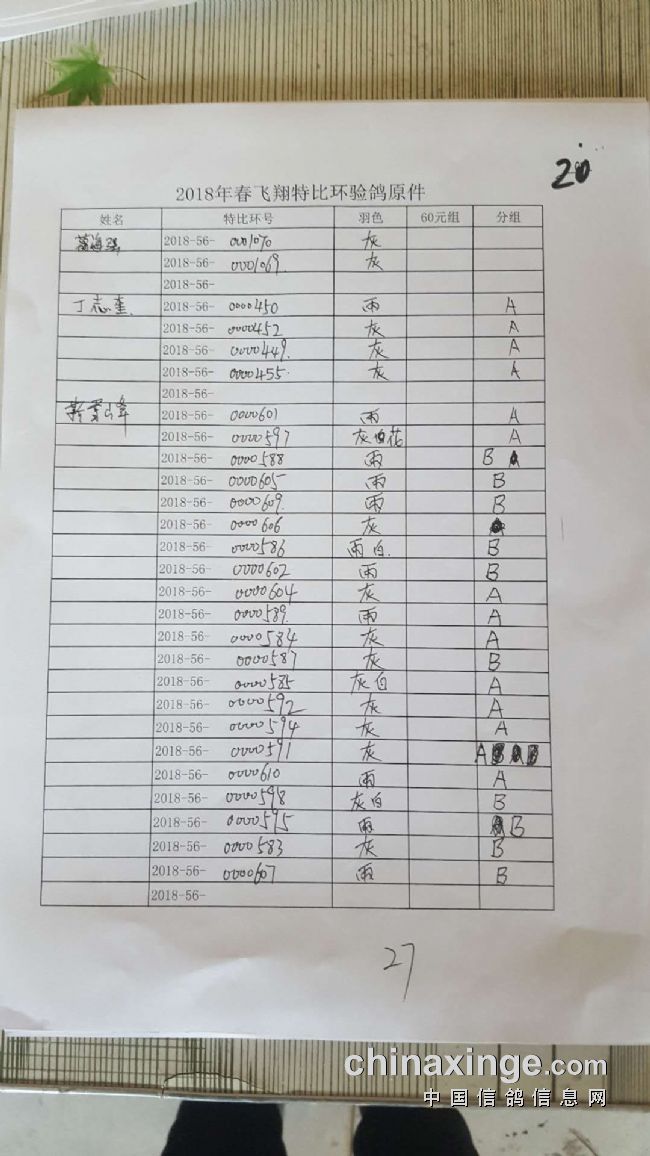 20
2018年春飞翔特比环验鸽原件
姓名 特比环号 羽色 60元组 分组
葛海 2018-56- 0001070 灰
2018-56- 0001069. 灰
2018-56-
丁志奎. 2018-56- 0000450 雨 A
2018-56- 0000452 灰 A
2018-56- 0000449. 灰 A
2018-56- 0000455. 灰 A
2018-56-
2018-56- 0000601 雨 A
2018-56- 0000597 灰白花 A
2018-56- 0000588 雨 B
2018-56- 0000605 雨 B
2018-56- 0000609. 雨 B
2018-56- 0000606 灰
2018-56- 0000586 雨白. B
2018-56- 0000602 雨 B
2018-56- 0000604 灰 A
2018-56- 0000589. 雨 A
2018-56- 0000584 灰 A
2018-56- 0000587 灰 B
2018-56- 0000585 灰白 A
2018-56- 0000592 灰 A
2018-56- 0000594 灰 A
2018-56- 0000591 灰 A
2018-56- 0000610 雨 A
2018-56- 0000598 灰白 B
2018-56- 0000595 雨 B
2018-56- 0000583 灰 B
2018-56- 0000607 雨 B
2018-56-
27
chinaxinge.com
中国信鸽信息网